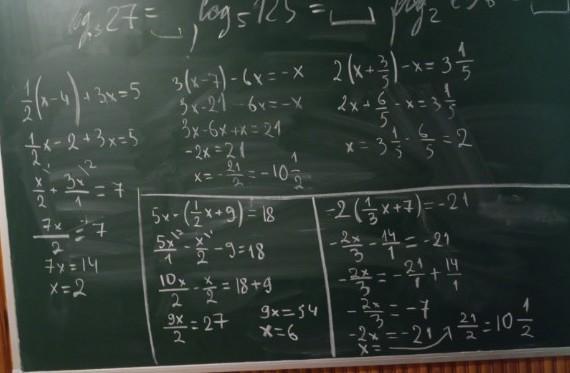 log₃ 27 = __, log₅ 125 = __ log₂
1/2(x-4) + 3x = 5
1/2x - 2 + 3x = 5
x/2 + 3x/1 = 7
7x/2 = 7
7x = 14
x = 2
3(x-7) - 6x = -x
3x-21 - 6x = -x
3x-6x+x = 21
-2x = 21
x = -21/2 = -10 1/2
2(x + 3/5) - x = 3 1/5
2x + 6/5 - x = 3 1/5
x = 3 1/5 - 6/5 = 2
5x - (1/2x + 9) = 18
5x/1 - x/2 - 9 = 18
10x/2 - x/2 = 18 + 9
9x/2 = 27
9x = 54
x = 6
-2(1/3x + 7) = -21
-2x/3 - 14/1 = -21
-2x/3 = -21/1 + 14/1
-2x/3 = -7
-2x = -21
x = 21/2 = 10 1/2